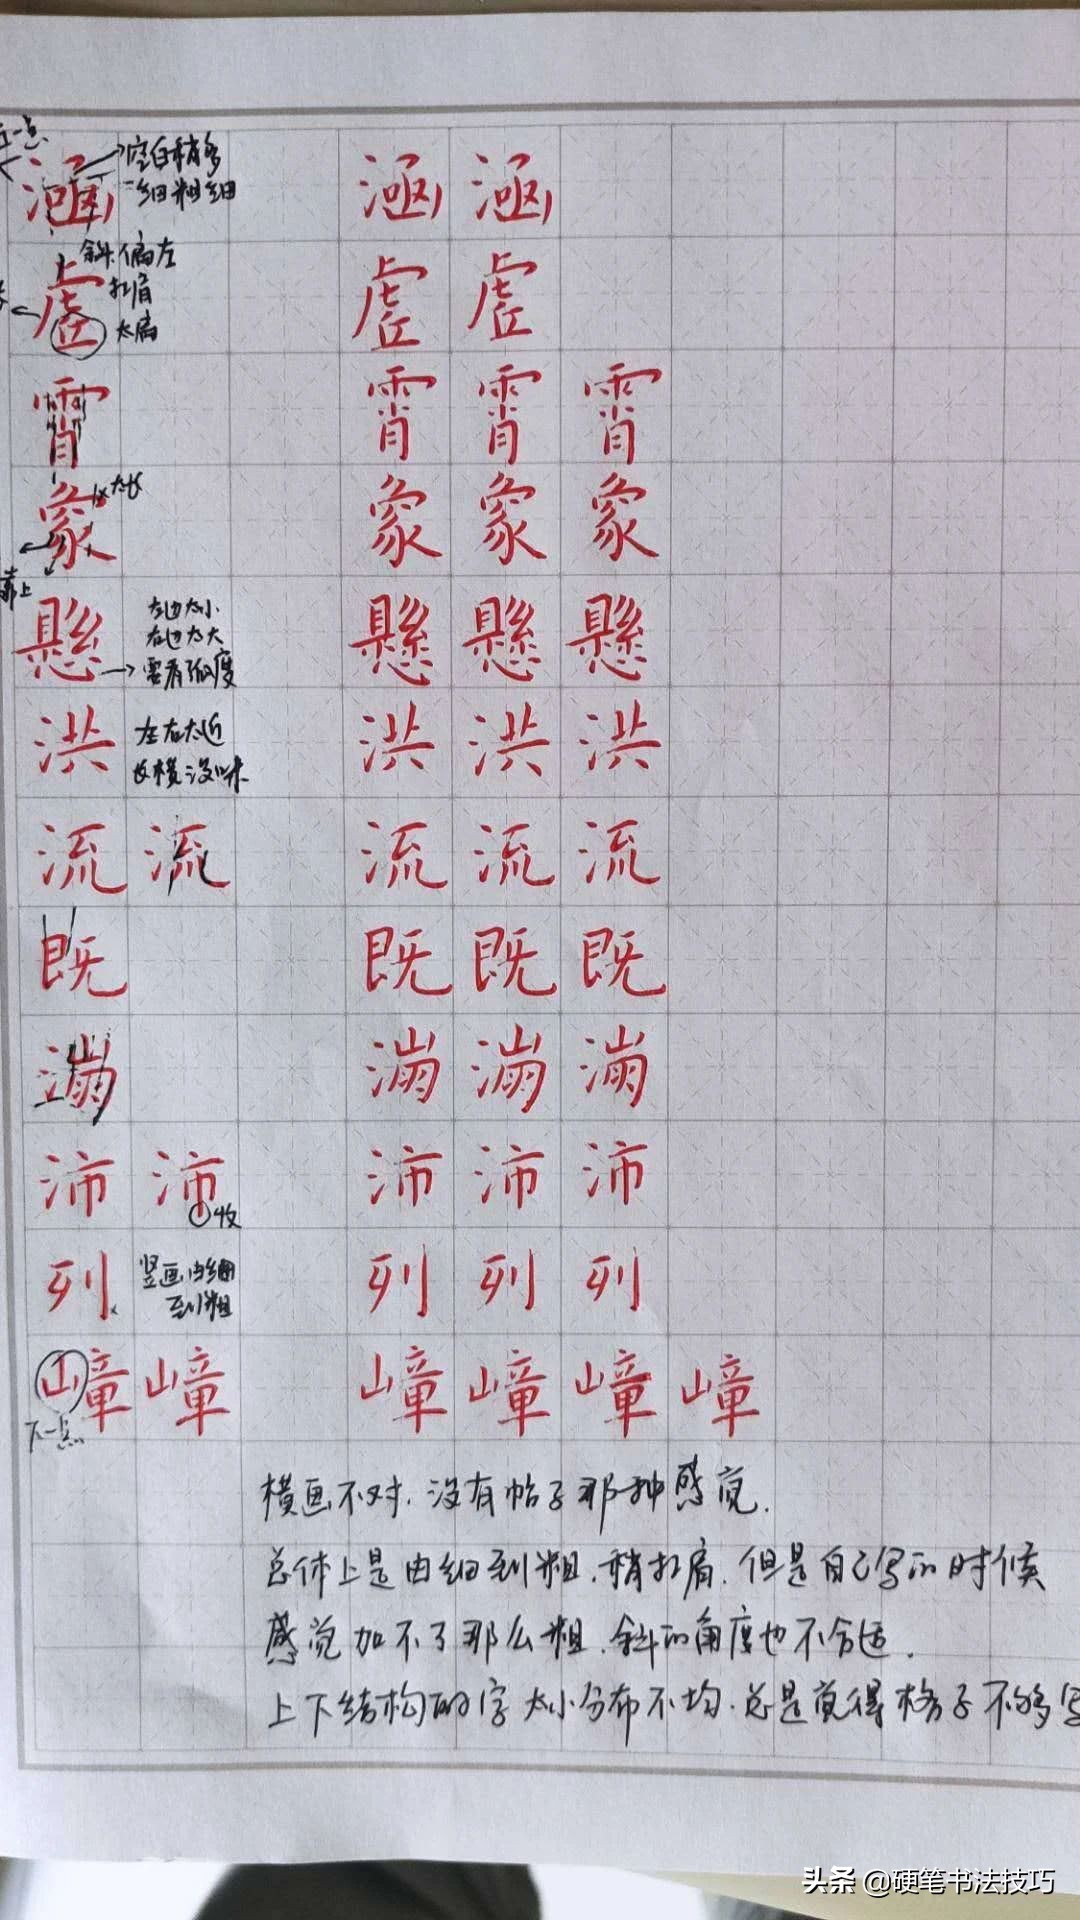 左一点
涵 空白稍多 涵 涵
细粗细
虚 斜.偏左 虚 虚
扛肩
太扁
霄 霄 霄 霄
象 太长 象 象 象
靠上
懸 左边太小 懸 懸 懸
右边太大
要有弧度
洪 左右太近 洪 洪 洪
长横没味
流 流 流 流 流
既 既 既 既
沛 沛 收 沛 沛 沛
列 竖画由细 列 列 列
到粗
嶂 嶂 嶂 嶂 嶂 嶂
下一点
横画不对.没有帖子那种感觉.
总体上是由细到粗.稍扛肩.但是自己写的时候
感觉加不了那么粗.斜的角度也不合适.
上下结构的字大小分布不均.总是觉得格子不够写
头条 @硬笔书法技巧